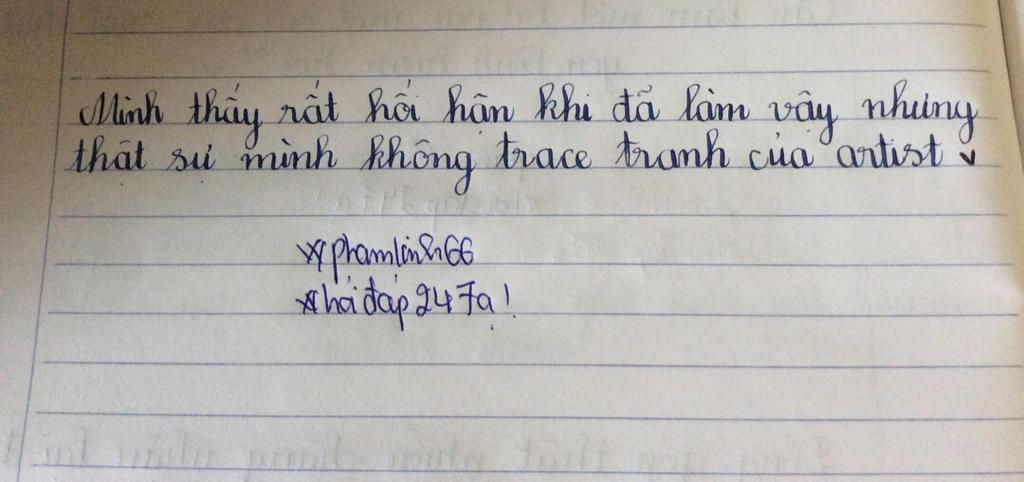 Mình thấy rất hối hận khi đã làm vậy nhưng
thật sự mình không trace tranh của artist v
phamlinh66
hỏi đáp 247 ạ!